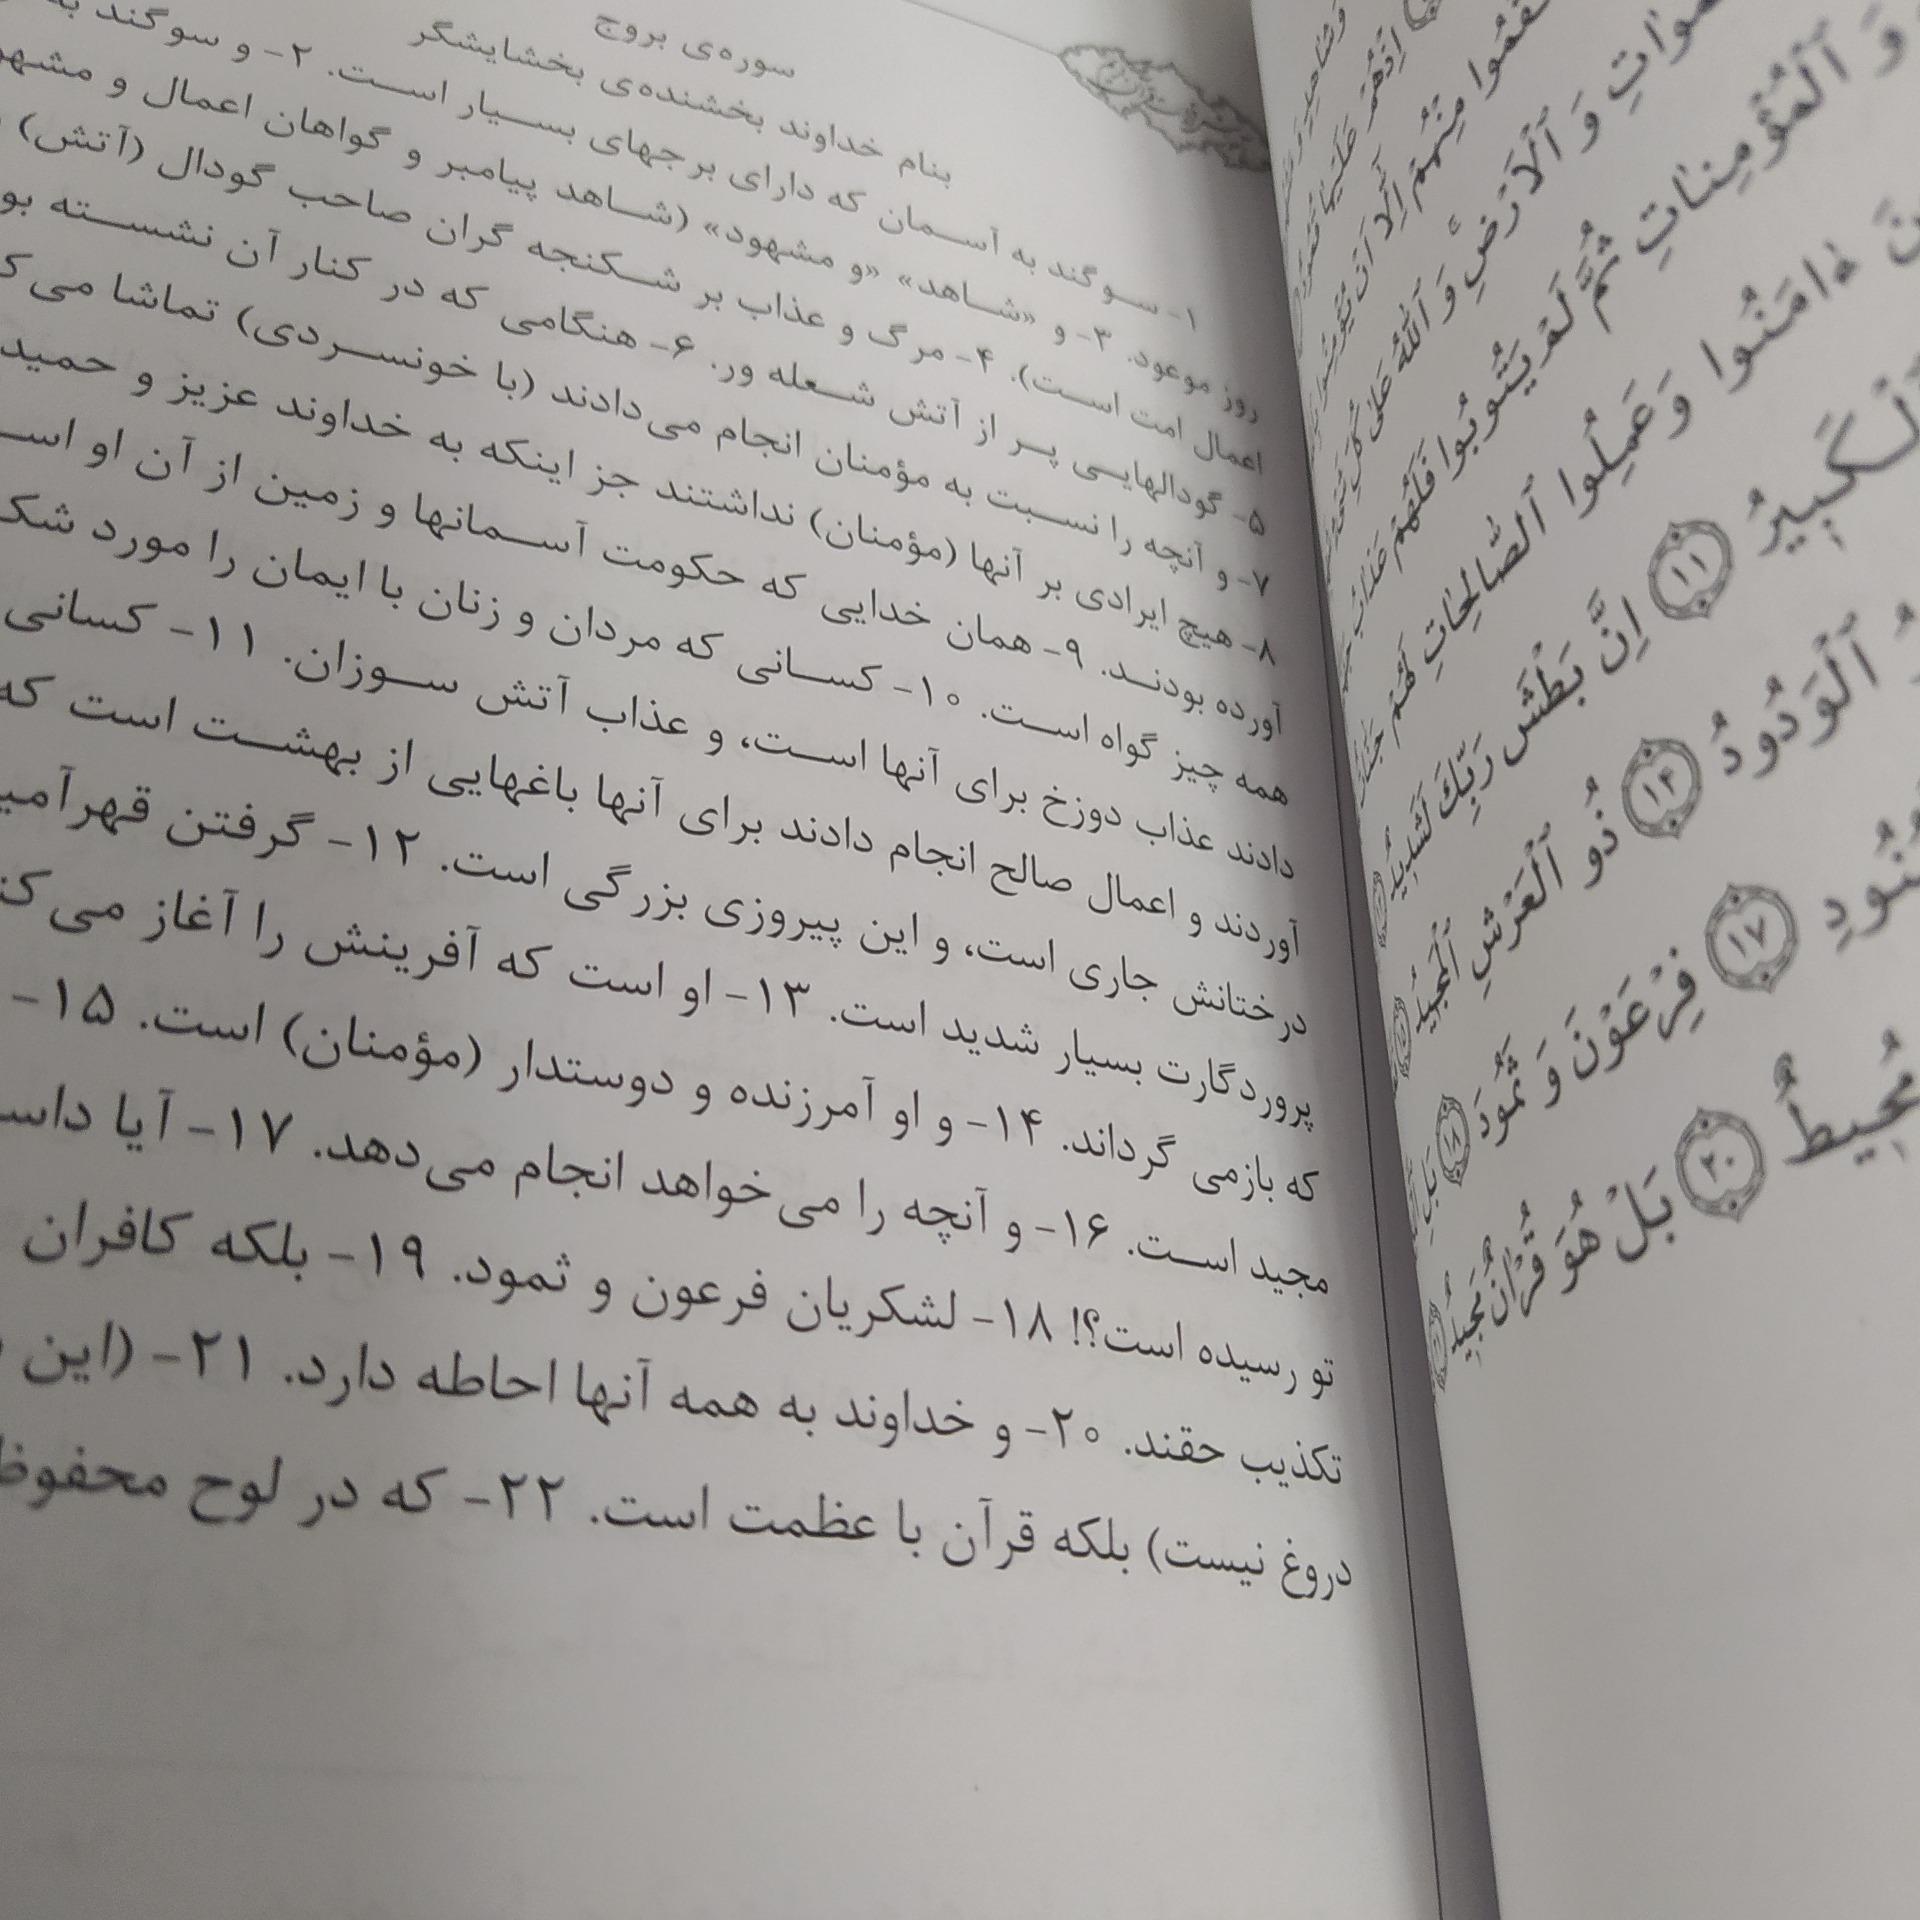 سوره‌ی بروج
بنام خداوند بخشنده‌ی بخشایشگر
۱- سوگند به آسمان که دارای برجهای بسیار است. ۲- و سوگند به
روز موعود. ۳- و «شاهد» «و مشهود» (شاهد پیامبر و گواهان اعمال و مشهود
اعمال امت است). ۴- مرگ و عذاب بر شکنجه گران صاحب گودال (آتش)
۵- گودالهایی پر از آتش شعله ور. ۶- هنگامی که در کنار آن نشسته
۷- و آنچه را نسبت به مؤمنان انجام می‌دادند (با خونسردی) تماشا
۸- هیچ ایرادی بر آنها (مؤمنان) نداشتند جز اینکه به خداوند عزیز و حمید
آورده بودند. ۹- همان خدایی که حکومت آسمانها و زمین از آن او
همه چیز گواه است. ۱۰- کسانی که مردان و زنان با ایمان را مورد
دادند عذاب دوزخ برای آنها است، و عذاب آتش سوزان. ۱۱- کسانی
آوردند و اعمال صالح انجام دادند برای آنها باغهایی از بهشت است که
درختانش جاری است، و این پیروزی بزرگی است. ۱۲- گرفتن
پروردگارت بسیار شدید است. ۱۳- او است که آفرینش را آغاز
که بازمی گرداند. ۱۴- و او آمرزنده و دوستدار (مؤمنان) است. ۱۵-
مجید است. ۱۶- و آنچه را می‌خواهد انجام می‌دهد. ۱۷- آیا
تو رسیده است؟! ۱۸- لشکریان فرعون و ثمود. ۱۹- بلکه کافران
تکذیب حقند. ۲۰- و خداوند به همه آنها احاطه دارد. ۲۱- (این
دروغ نیست) بلکه قرآن با عظمت است. ۲۲- که در لوح محفوظ
مِنْهُمْ اِلّا اَنْ
وَ ٱلْاَرْضِ وَ ٱللهُ عَلىٰ كُلِّ
وَ ٱلْمُؤْمِناتِ ثُمَّ لَمْ يَتُوبُوا فَلَهُمْ عَذابُ
ءامَنُوا وَ عَمِلُوا ٱلصّالِحاتِ لَهُمْ
ٱلْكَبِيرُ ۱۱ اِنَّ بَطْشَ رَبِّكَ لَشَدِيدٌ
ٱلْوَدُودُ ۱۴ ذُو ٱلْعَرْشِ ٱلْمَجِيدُ
۱۷ فِرْعَوْنَ وَ ثَمُودَ ۱۸ بَلِ
مُحِيطٌ ۲۰ بَلْ هُوَ قُرْءانٌ مَجِيدٌ